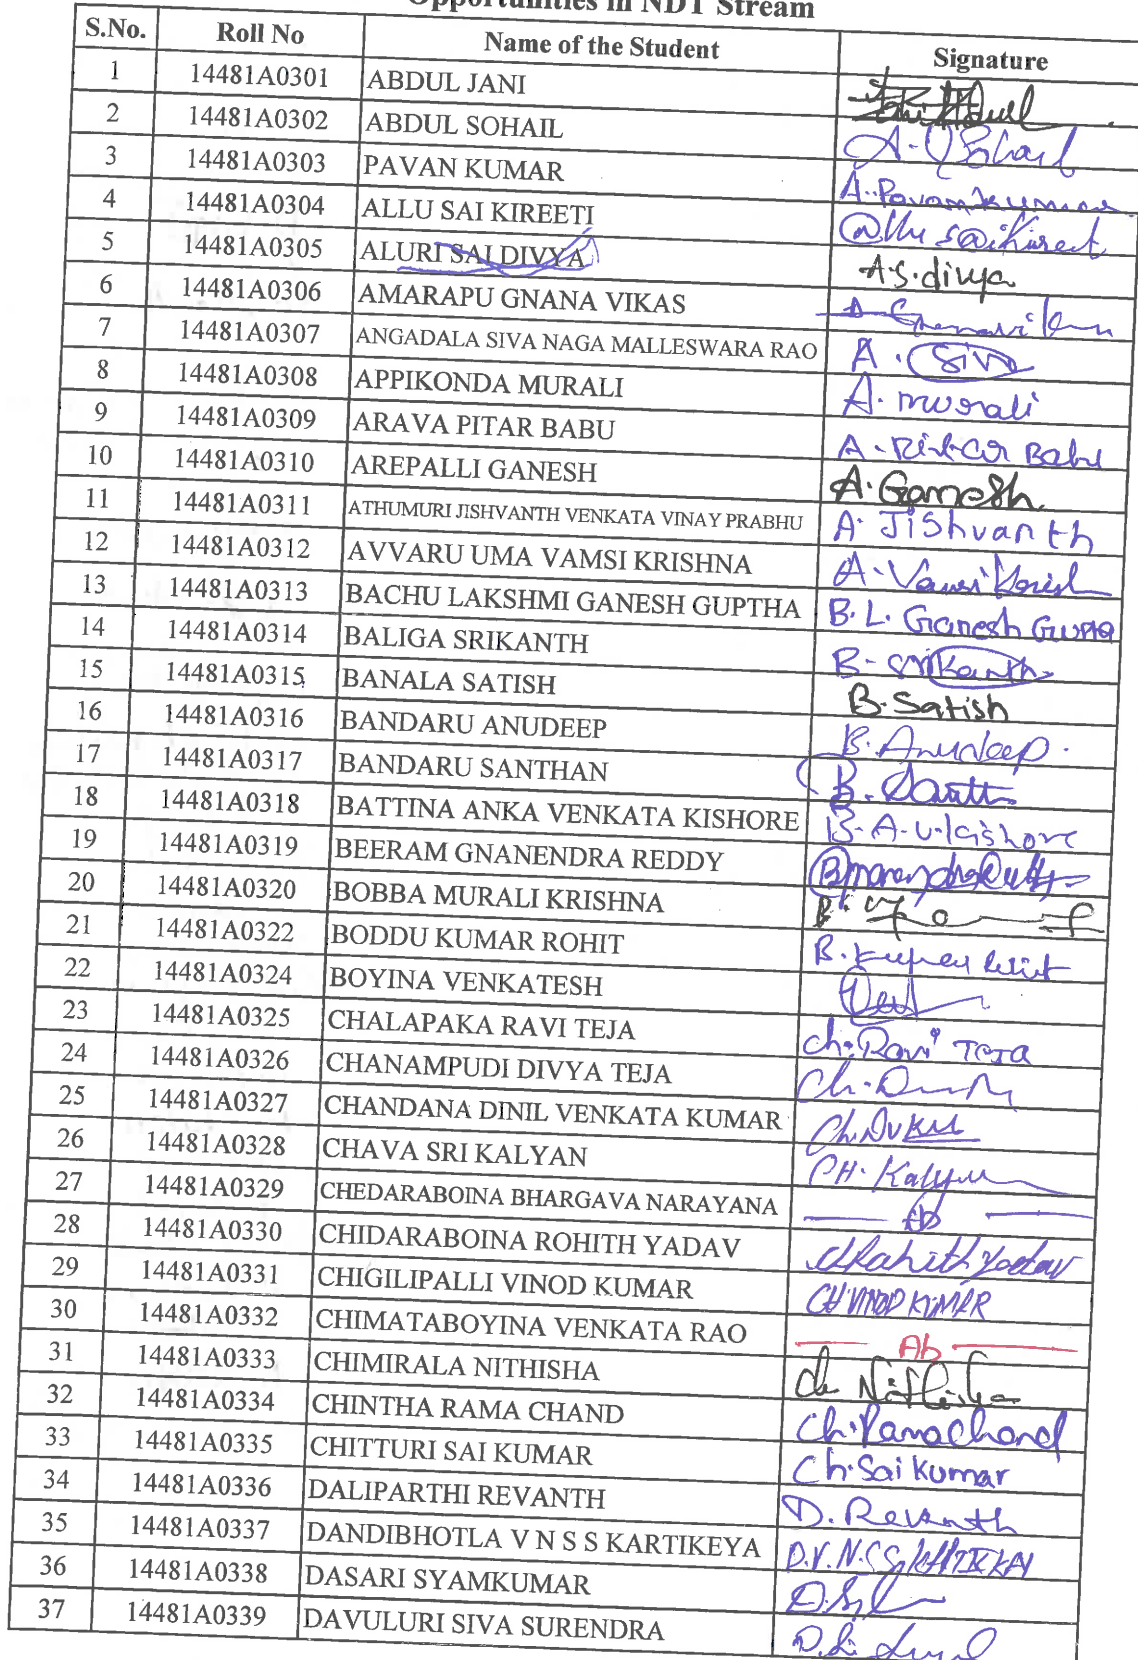 Opportunities in NDT Stream
S.No. Roll No Name of the Student Signature
1 14481A0301 ABDUL JANI
2 14481A0302 ABDUL SOHAIL A. Sohail
3 14481A0303 PAVAN KUMAR A. Pavan kumar
4 14481A0304 ALLU SAI KIREETI Allu saikireeti
5 14481A0305 ALURI SAI DIVYA A.S.divya
6 14481A0306 AMARAPU GNANA VIKAS
7 14481A0307 ANGADALA SIVA NAGA MALLESWARA RAO A. Siva
8 14481A0308 APPIKONDA MURALI A. murali
9 14481A0309 ARAVA PITAR BABU A. Babu
10 14481A0310 AREPALLI GANESH A. Ganesh.
11 14481A0311 ATHUMURI JISHVANTH VENKATA VINAY PRABHU A. Jishvanth
12 14481A0312 AVVARU UMA VAMSI KRISHNA A. Vamsi Krish
13 14481A0313 BACHU LAKSHMI GANESH GUPTHA B. L. Ganesh Gupta
14 14481A0314 BALIGA SRIKANTH B. Srikanth
15 14481A0315 BANALA SATISH B. Satish
16 14481A0316 BANDARU ANUDEEP B. Anudeep.
17 14481A0317 BANDARU SANTHAN B.
18 14481A0318 BATTINA ANKA VENKATA KISHORE B. A. V. Kishore
19 14481A0319 BEERAM GNANENDRA REDDY
20 14481A0320 BOBBA MURALI KRISHNA
21 14481A0322 BODDU KUMAR ROHIT B.
22 14481A0324 BOYINA VENKATESH
23 14481A0325 CHALAPAKA RAVI TEJA Ch. Ravi Teja
24 14481A0326 CHANAMPUDI DIVYA TEJA Ch.
25 14481A0327 CHANDANA DINIL VENKATA KUMAR
26 14481A0328 CHAVA SRI KALYAN CH. Kalyan
27 14481A0329 CHEDARABOINA BHARGAVA NARAYANA Ab
28 14481A0330 CHIDARABOINA ROHITH YADAV Rohith Yadav
29 14481A0331 CHIGILIPALLI VINOD KUMAR CH VINOD KUMAR
30 14481A0332 CHIMATABOYINA VENKATA RAO Ab
31 14481A0333 CHIMIRALA NITHISHA Ch Nithisha
32 14481A0334 CHINTHA RAMA CHAND Ch. Ramachand
33 14481A0335 CHITTURI SAI KUMAR Ch. Sai kumar
34 14481A0336 DALIPARTHI REVANTH D. Revanth
35 14481A0337 DANDIBHOTLA V N S S KARTIKEYA D.V.N.S.S
36 14481A0338 DASARI SYAMKUMAR
37 14481A0339 DAVULURI SIVA SURENDRA